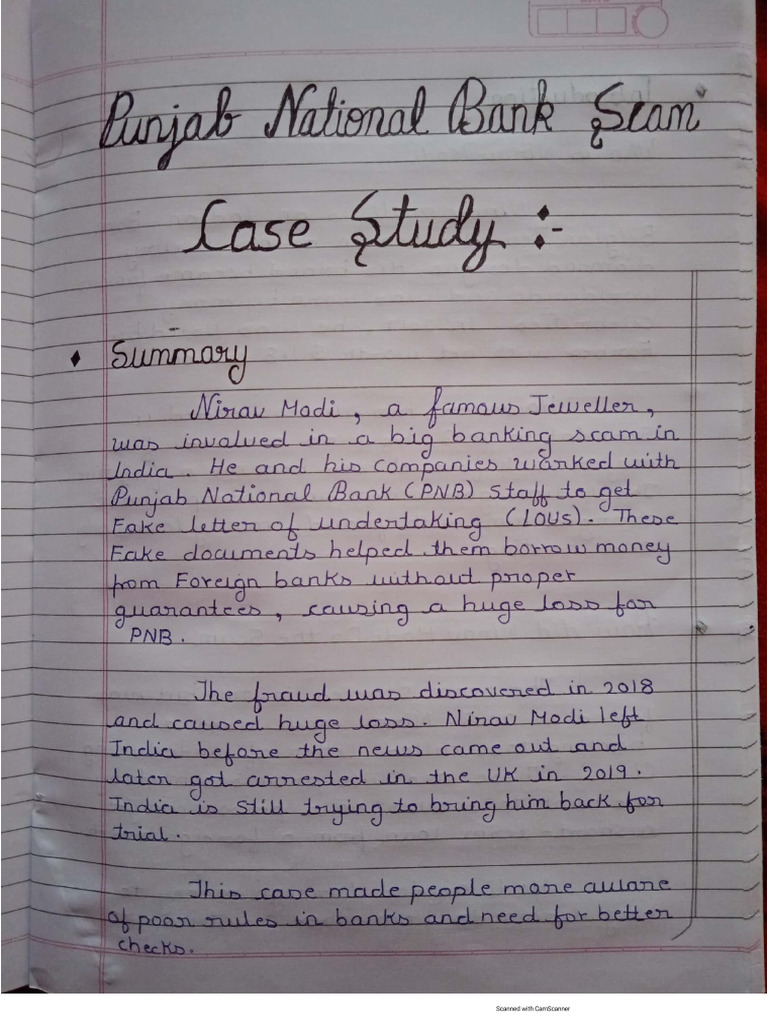 Punjab National Bank Scam
Case Study :-
♦ Summary
Nirav Modi, a famous Jeweller,
was involved in a big banking scam in
India. He and his companies worked with
Punjab National Bank (PNB) staff to get
Fake letter of undertaking (LOUs). These
Fake documents helped them borrow money
from Foreign banks without proper
guarantees, causing a huge loss for
PNB.
The fraud was discovered in 2018
and caused huge loss. Nirav Modi left
India before the news came out and
later got arrested in the UK in 2019.
India is still trying to bring him back for
trial.
This case made people more aware
of poor rules in banks and need for better
checks.
Scanned with CamScanner